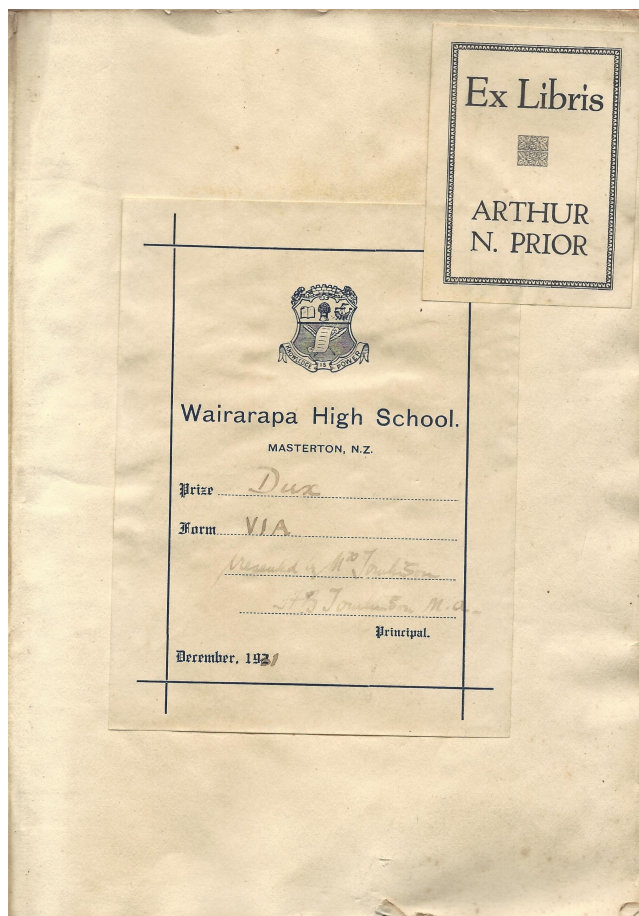 Ex Libris
ARTHUR
N. PRIOR
KNOWLEDGE IS POWER
Wairarapa High School.
MASTERTON, N.Z.
Prize Dux
Form VIA
presented by Mrs Tomlinson
Tomlinson M.A.
Principal.
December, 1931